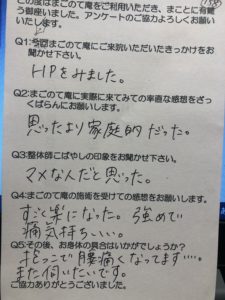 この度はまごのて庵をご利用いただき、まことに有難
う御座いました。アンケートのご協力よろしくお願い
いたします。
Q1:今回まごのて庵にご来院いただいたきっかけをお
聞かせ下さい。
HPをみました。
Q2:まごのて庵に実際に来てみての率直な感想をざっ
くばらんにお願いします。
思ったより家庭的だった。
Q3:整体師こばやしの印象をお聞かせ下さい。
マメな人だと思った。
Q4:まごのて庵の施術を受けての感想をお願いします。
すごく楽になった。強めで
痛気持ちいい。
Q5:その後、お身体の具合はいかがでしょうか?
抱っこで腰痛くなってます…。
また伺いたいです。
ご協力ありがとうございました。